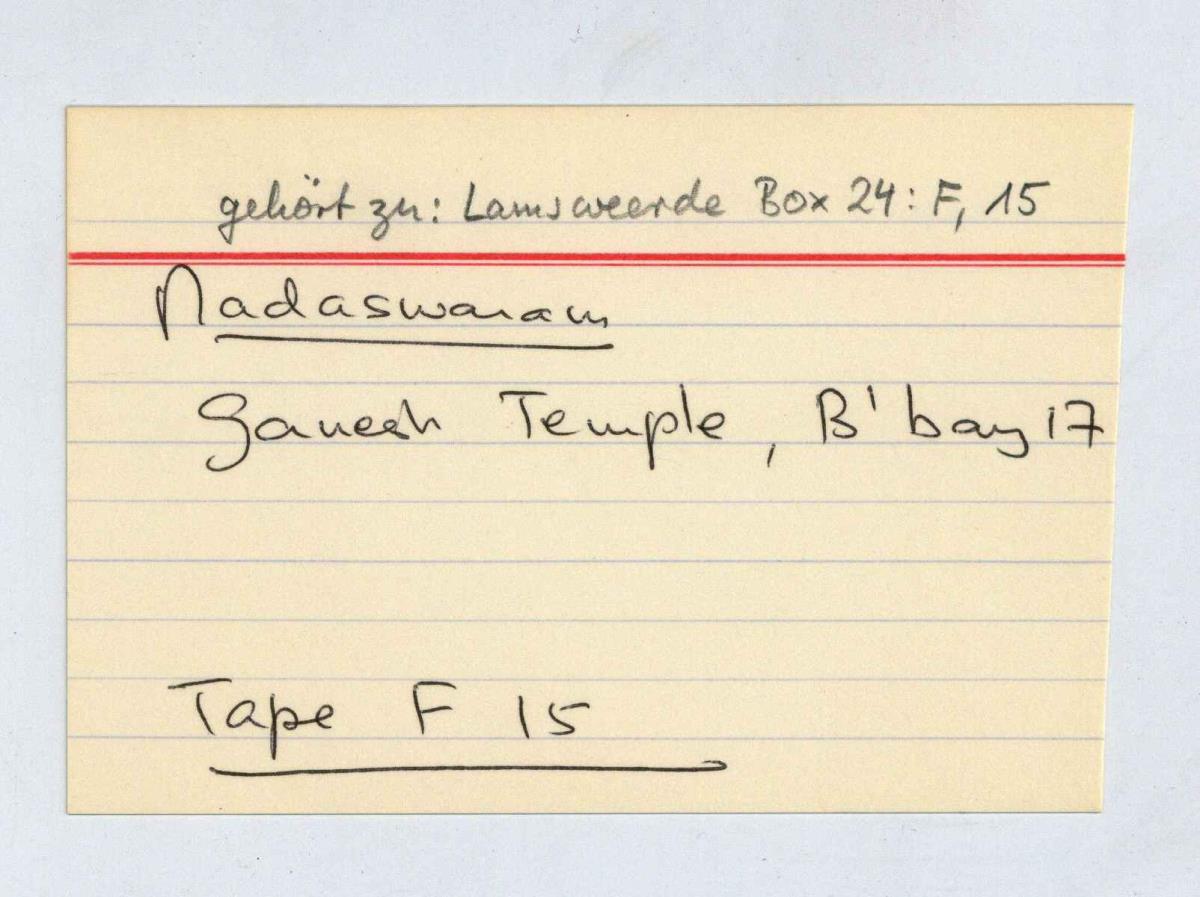 gehört zu: Lamsweerde Box 24: F, 15
Nadaswaram
Ganesh Temple, B'bay 17
Tape F 15